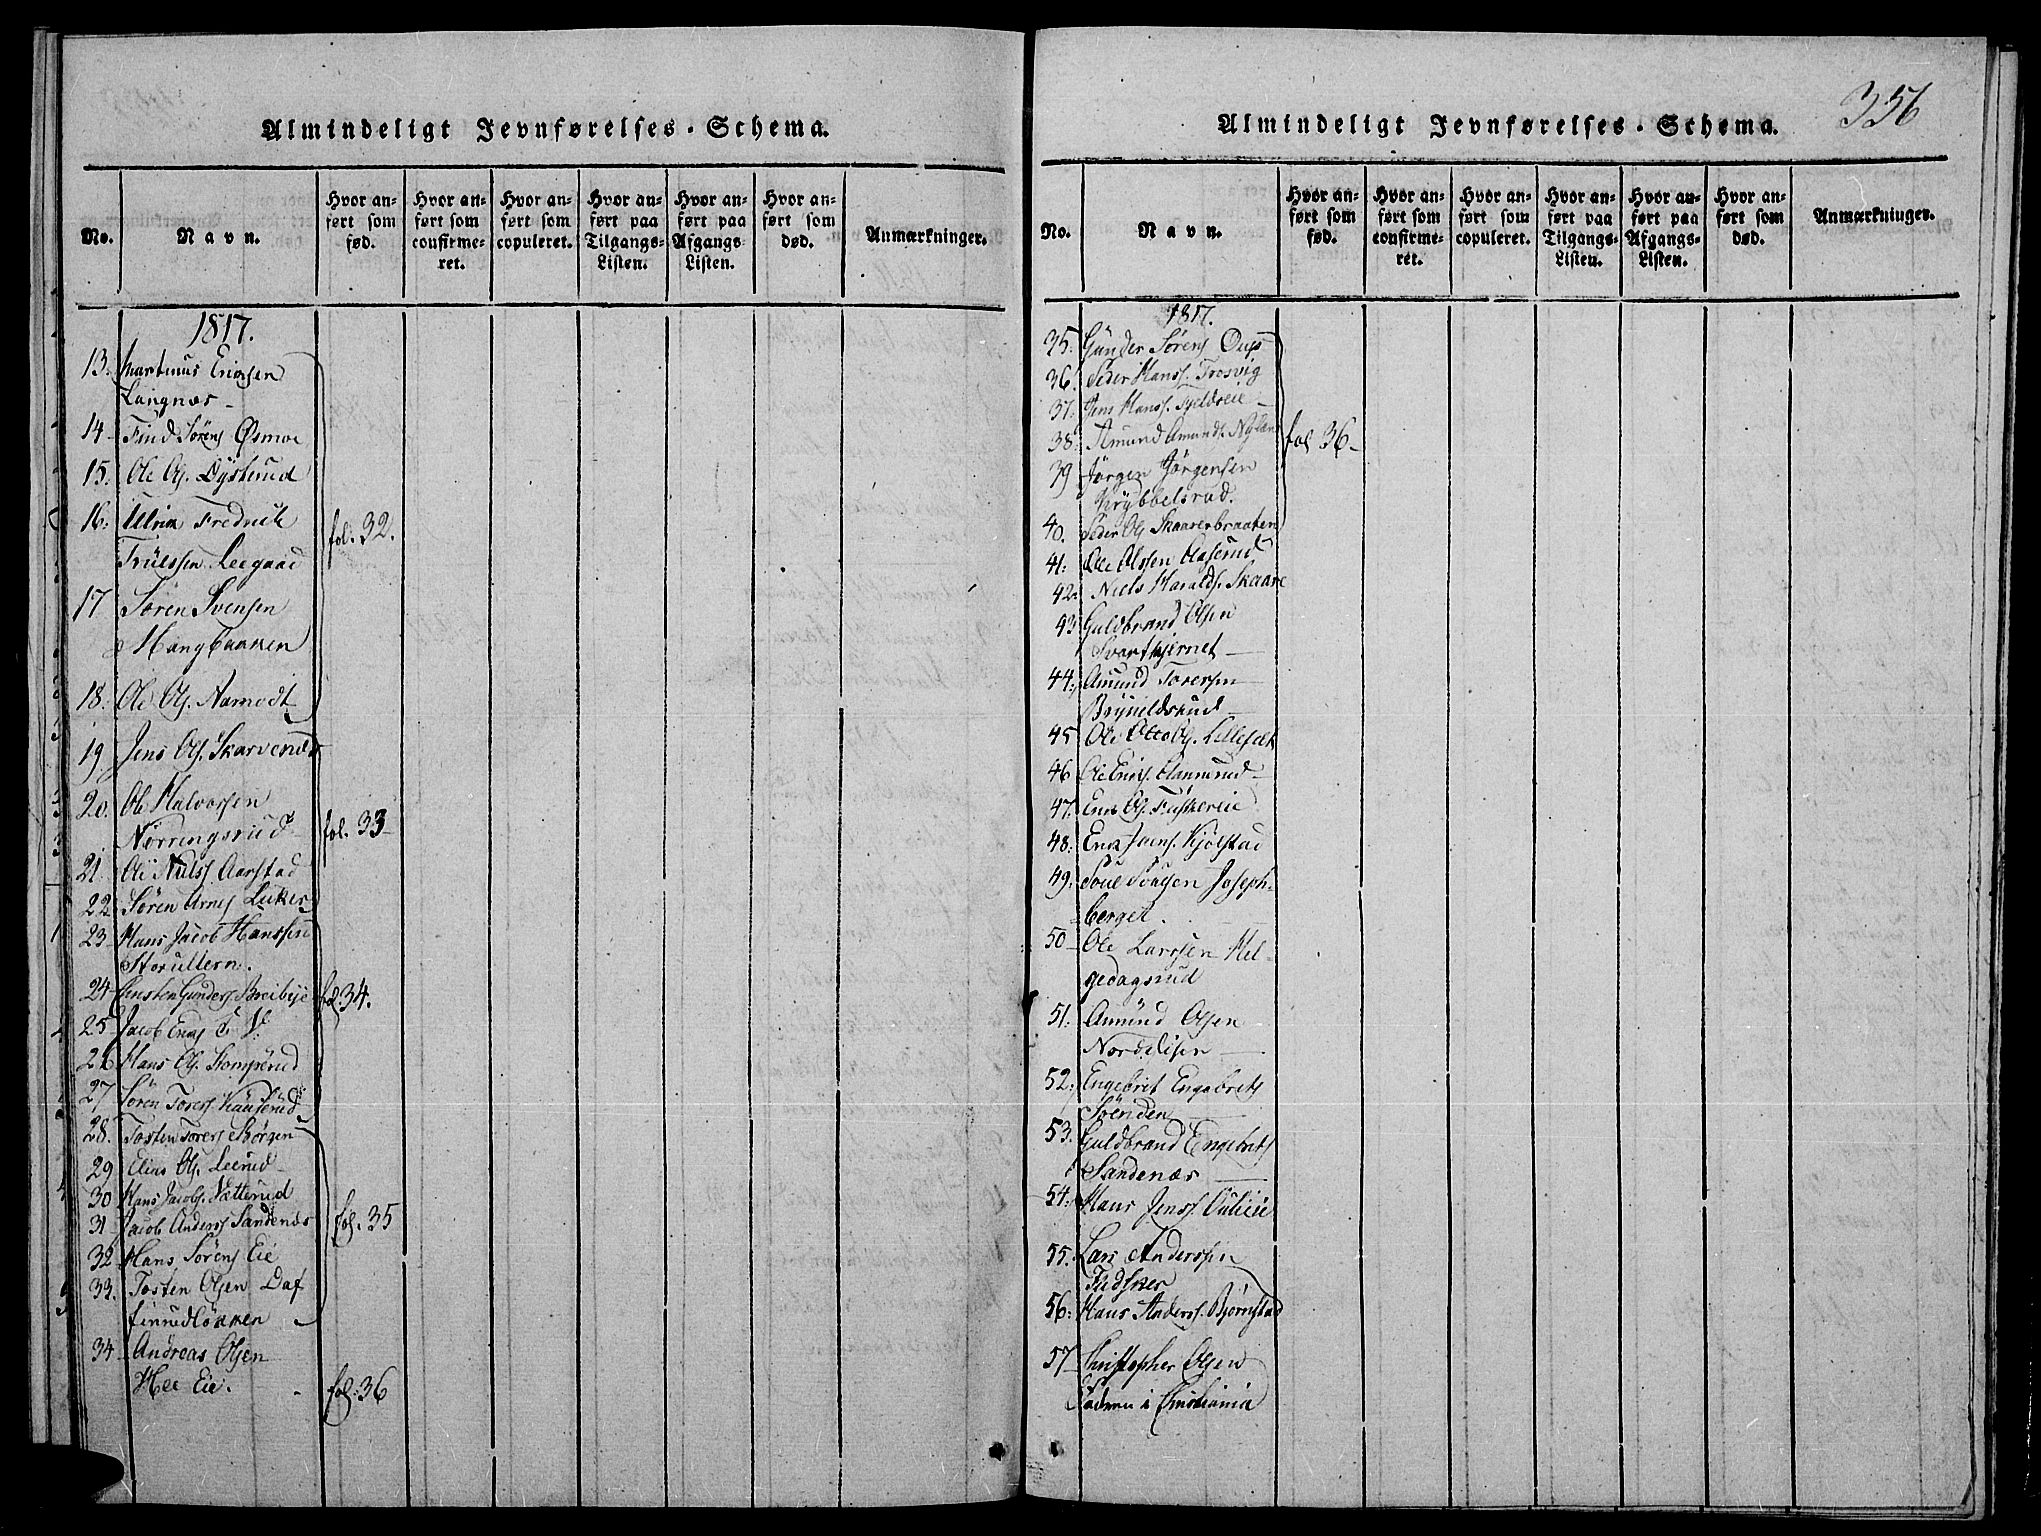 Almindeligt Jevnførelses-Schema.
No.
Navn.
Hvor an-
ført som
fød.
Hvor an-
ført som
confirme-
ret.
Hvor an-
ført som
copuleret.
Hvor an-
ført paa
Tilgangs-
Listen.
Hvor an-
ført paa
Afgangs-
Listen.
Hvor an-
ført som
død.
Anmærkninger.
1817.
13. Martinus Ericksen
Langnæs
14 Find Sørens Øsmoe
15. Ole Ols. Dysterud
16. Ulrick Fredrick
fol. 32.
Trulssen Leegaad
17 Søren Svensen
Haugbakken
18. Ole Ols. Aamodt
19. Jens Ols. Skarvenæs
20. Ole Halvorsen
Nørringsrud
fol. 33
21. Ole Nielss Aarstad
22 Søren Arnes
23 Hans Jacob Hanssen
Storullern.
24 Gunders Breibye
fol. 34.
25 Jacob
26 Hans Ols. Stomperud
27 Søren Toress
28. Tosten Toress
29 Elias Ols. Leerud
30 Hans Jacobs. Natterud
31 Jacob Anderss Sandenæs
fol. 35
32 Hans Sørens Eie
33. Tosten Olsen Daf
finrudløkken
34 Andreas Olsen
Hee Eie.
fol. 36
356
Almindeligt Jevnførelses-Schema.
No.
Navn.
Hvor an-
ført som
fød.
Hvor an-
ført som
confirme-
ret.
Hvor an-
ført som
copuleret.
Hvor an-
ført paa
Tilgangs-
Listen.
Hvor an-
ført paa
Afgangs-
Listen.
Hvor an-
ført som
død.
Anmærkninger.
1817.
35. Gunder Sørens
36. Peder Hanss. Trosvig
37. Jens Hanss.
38. Amund Amunds.
fol 36
39 Jørgen Jørgensen
Krybbelsrud.
40. Peder Ols Skaarerbraaten
41. Ole Olssen Aaserud
42. Niels Haralds. Skaare
43 Guldbrand Olsen
Svartkjernet
44. Amund Toresen
Bøynildsrud
45 Ole Ols. Lillesæt
46 Ole Ericks.
47. Erick Ols. Fuskereie
48. Erick Jens. Kjølstad
49. Poul Poulsen Joseph-
berget.
50 Ole Larssen Hel-
gedagsrud
51. Amund Olsen
Nordelisen
52. Engebrit Engebrets
53. Guldbrand Engebrets
Sandenæs
54. Hans Jenss.
55. Lars Anderssen
Fudsker
56. Hans Anderss. Bjørnstad
57 Christopher Olsen
Faderen i Christiania